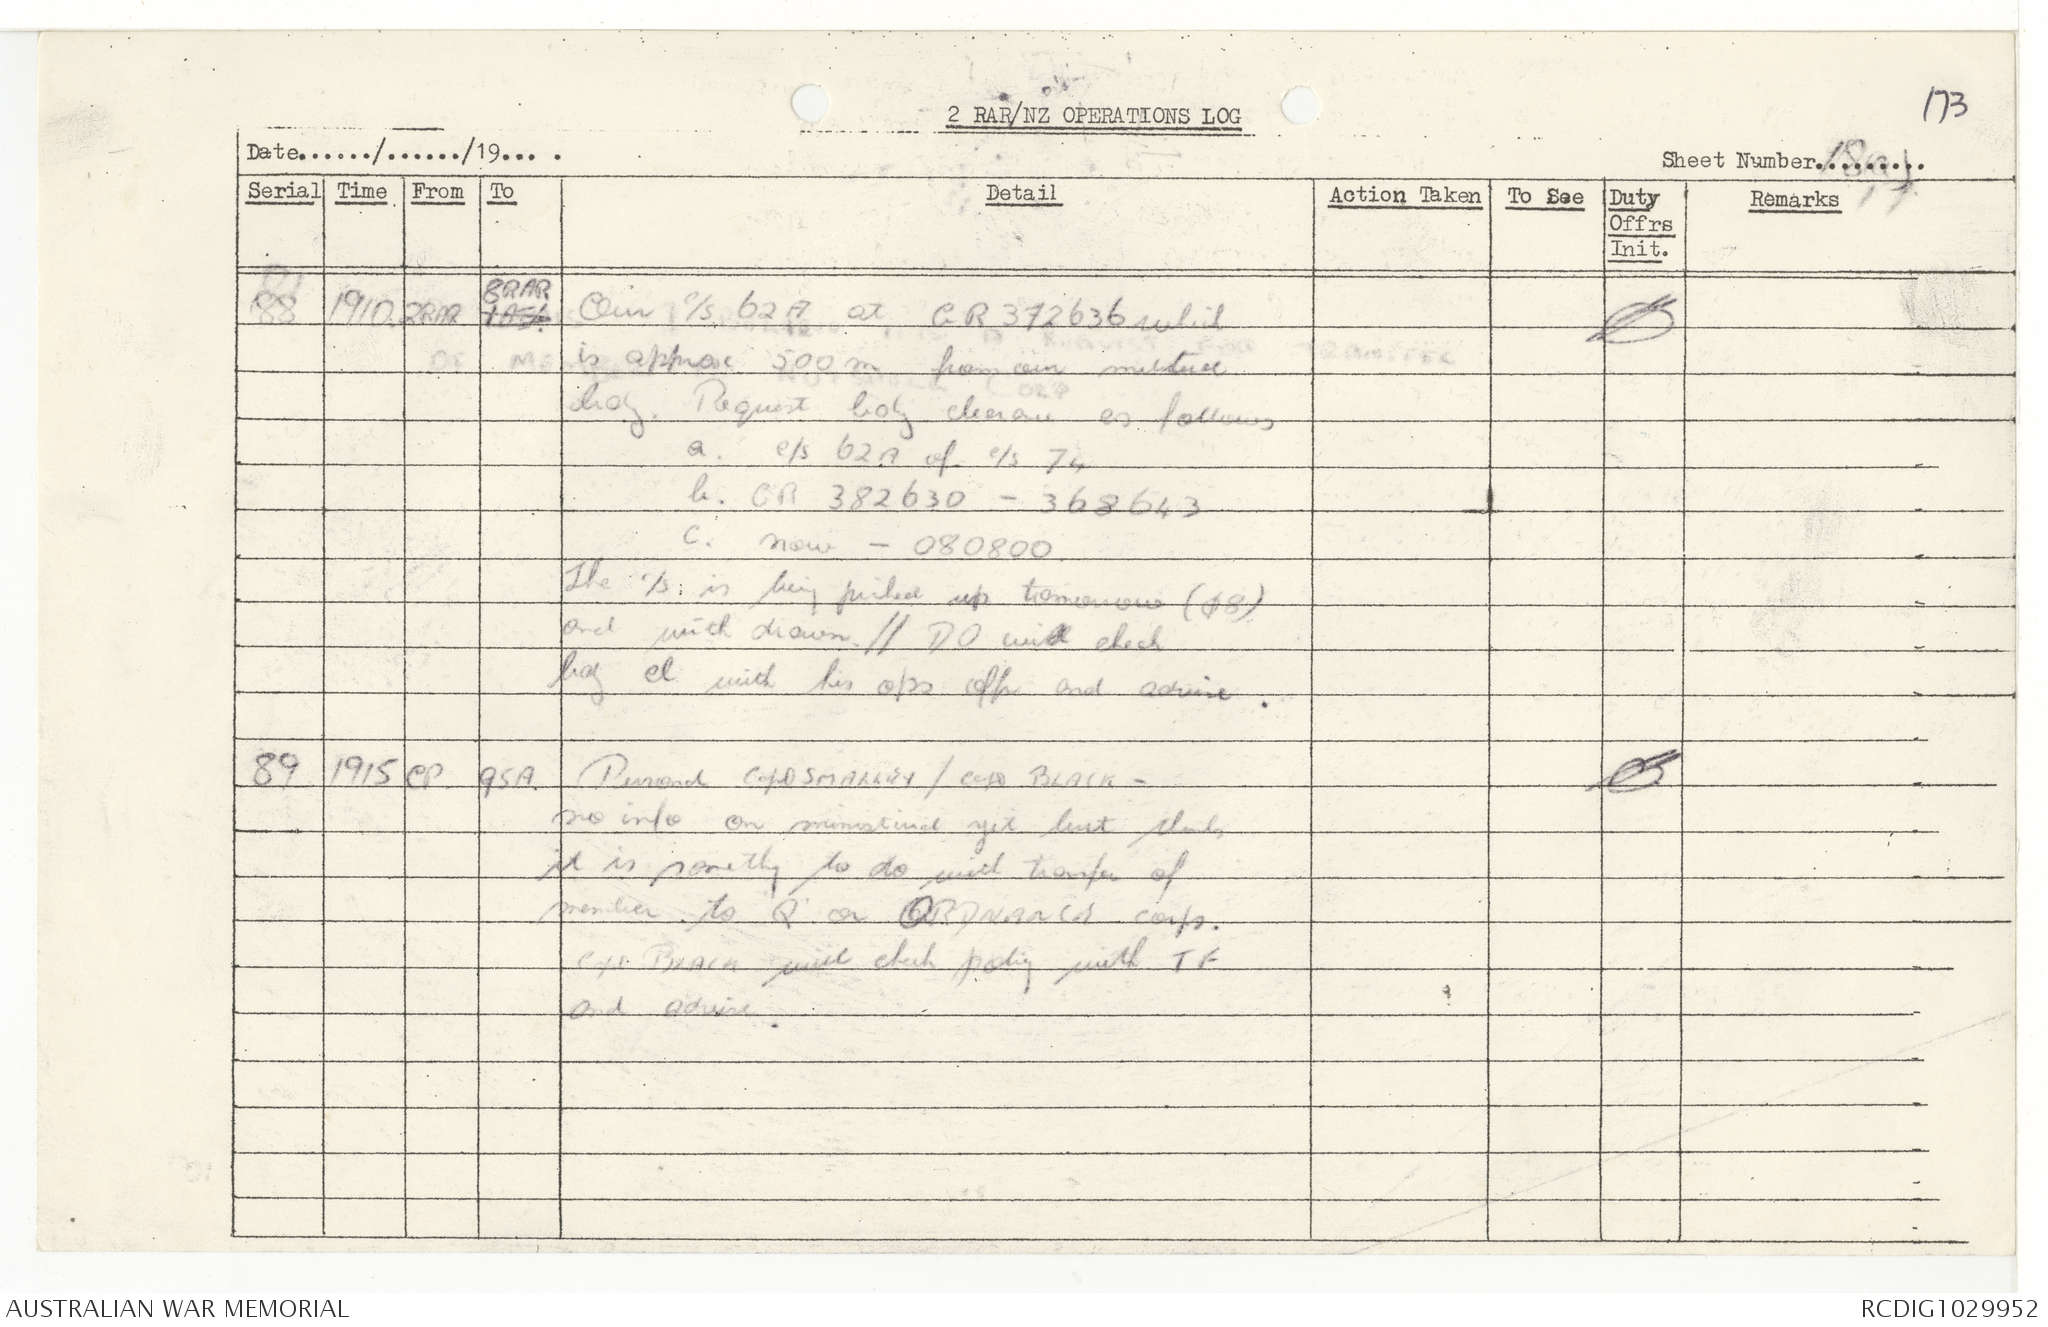 173
2 RAR/NZ OPERATIONS LOG
Date....../....../19... .
Sheet Number.........
Serial Time From To Detail Action Taken To See Duty Offrs Init. Remarks
88 1910 2RAR 8RAR Our c/s 62A at GR 372636 which
is approx 500 m from our
bdy. Request bdy clearance as follows
a. c/s 62A of c/s 74
b. GR 382630 - 368643
c. now - 080800
The c/s is being picked up tomorrow (08)
and with drawn. // DO will check
bdy cl with his ops offr and advise.
89 1915 CP 95A. Personal Capt SMALLEY / Capt BLACK -
no info on ministerial yet but thinks
it is somethg to do with transfer of
member to Q or ORDNANCE corps.
Capt BLACK will check policy with TF
and advise.
AUSTRALIAN WAR MEMORIAL
RCDIG1029952